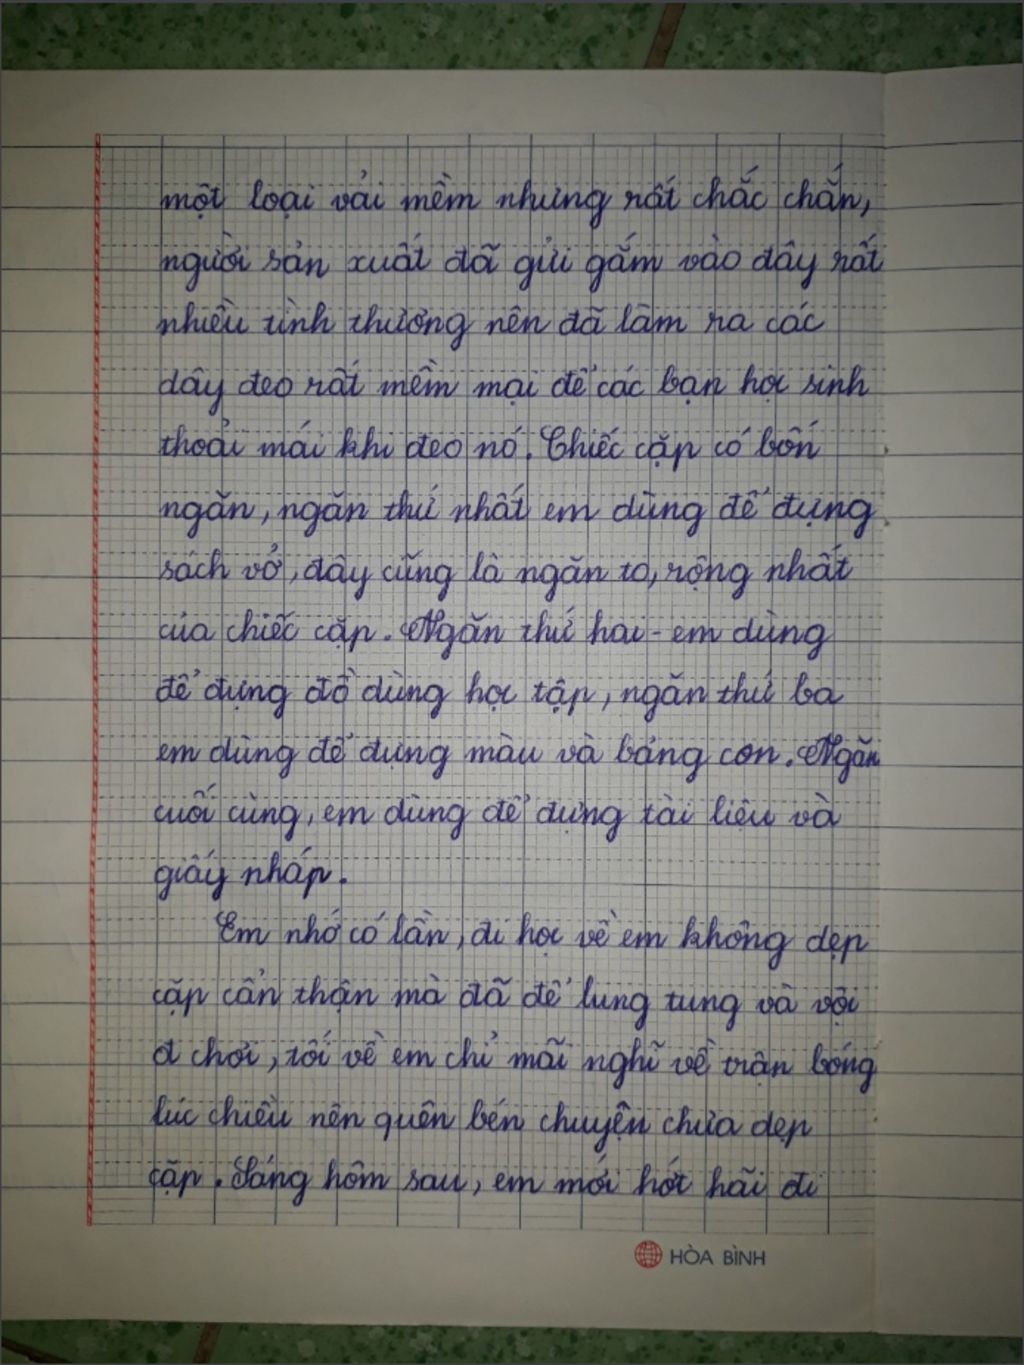 một loại vải mềm nhưng rất chắc chắn,
người sản xuất đã gửi gắm vào đây rất
nhiều tình thương nên đã làm ra các
dây đeo rất mềm mại để các bạn học sinh
thoải mái khi đeo nó. Chiếc cặp có bốn
ngăn, ngăn thứ nhất em dùng để đựng
sách vở, đây cũng là ngăn to, rộng nhất
của chiếc cặp. Ngăn thứ hai - em dùng
để đựng đồ dùng học tập, ngăn thứ ba
em dùng để đựng màu và bảng con. Ngăn
cuối cùng, em dùng để đựng tài liệu và
giấy nháp.
Em nhớ có lần, đi học về em không dẹp
cặp cẩn thận mà đã để lung tung và vội
đi chơi, tối về em chỉ mãi nghĩ về trận bóng
lúc chiều nên quên bén chuyện chưa dẹp
cặp. Sáng hôm sau, em mới hớt hãi đi
HÒA BÌNH